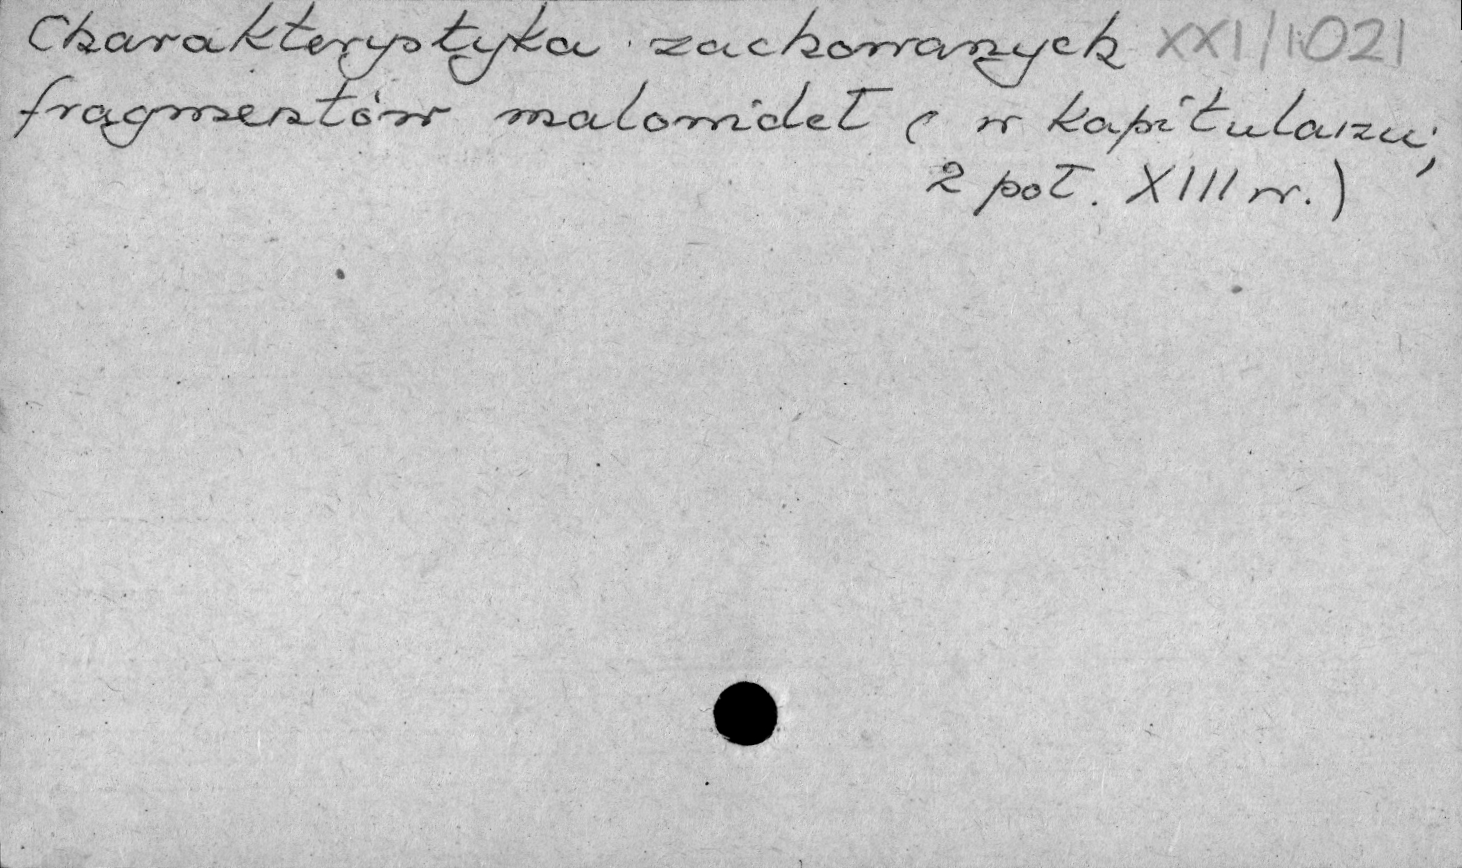 Charakterystyka zachowanych XXI/1021
fragmentów malowideł (w kapitularzu;
2 poł. XIII w.)